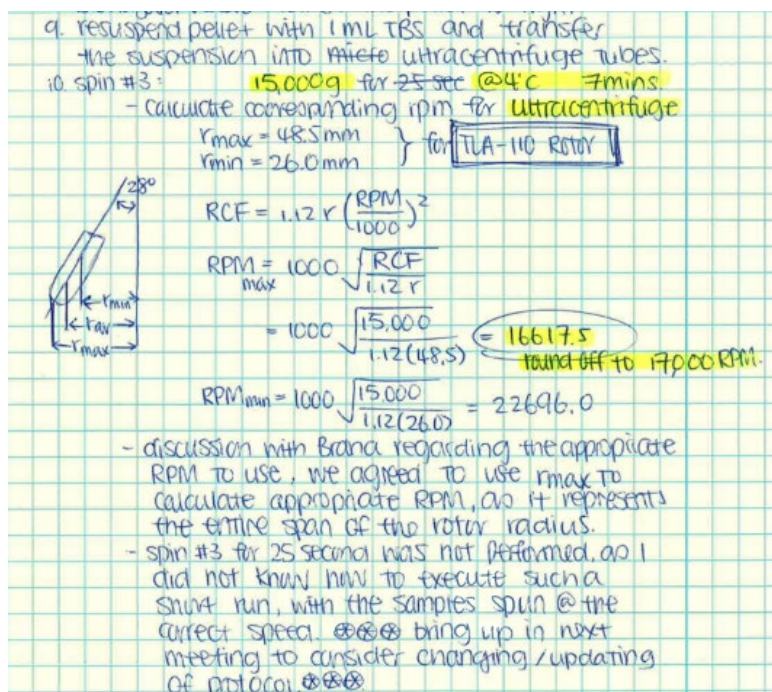 9. resuspend pellet with 1mL TBS and transfer
the suspension into micro ultracentrifuge tubes.
10. spin #3: 15,000g for 25 sec @4°C 7mins.
- calculate corresponding rpm for ultracentrifuge
rmax = 48.5mm
rmin = 26.0mm } for TLA-110 ROTOR
28°
rmin
rav
rmax
RCF = 1.12 r (RPM/1000)²
RPM max = 1000 √(RCF/1.12 r)
= 1000 √(15,000/1.12(48.5)) = 16617.5
round off to 17,000 RPM.
RPM min = 1000 √(15,000/1.12(26.0)) = 22696.0
- discussion with Brana regarding the appropriate
RPM to use, we agreed to use rmax to
calculate appropriate RPM, as it represents
the entire span of the rotor radius.
- spin #3 for 25 second was not performed, as I
did not know how to execute such a
short run, with the samples spun @ the
correct speed. ⊛⊛⊛ bring up in next
meeting to consider changing/updating
of protocol ⊛⊛⊛